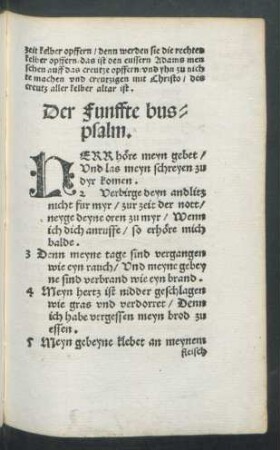 zeit kelber opffern/ denn werden sie die rechten
kelber opffern. das ist den eussern Adams men
schen auff das creutze opffern vnd yhn zu nich
te machen vnd creutzigen mit Christo/ des
creutz aller kelber altar ist.
Der Funffte bus-
psalm.
HERR höre meyn gebet/
Vnd las meyn schreyen zu
dyr komen.
2 Verbirge deyn andlitz
nicht fur myr/ zur zeit der nott/
neyge deyne oren zu myr/ Wenn
ich dich anruffe/ so erhöre mich
balde.
3 Denn meyne tage sind vergangen
wie eyn rauch/ Vnd meyne gebey
ne sind verbrand wie eyn brand.
4 Meyn hertz ist nidder geschlagen
wie gras vnd verdorret/ Denn
ich habe vergessen meyn brod zu
essen.
5 Meyn gebeyne klebet an meynem
fleisch